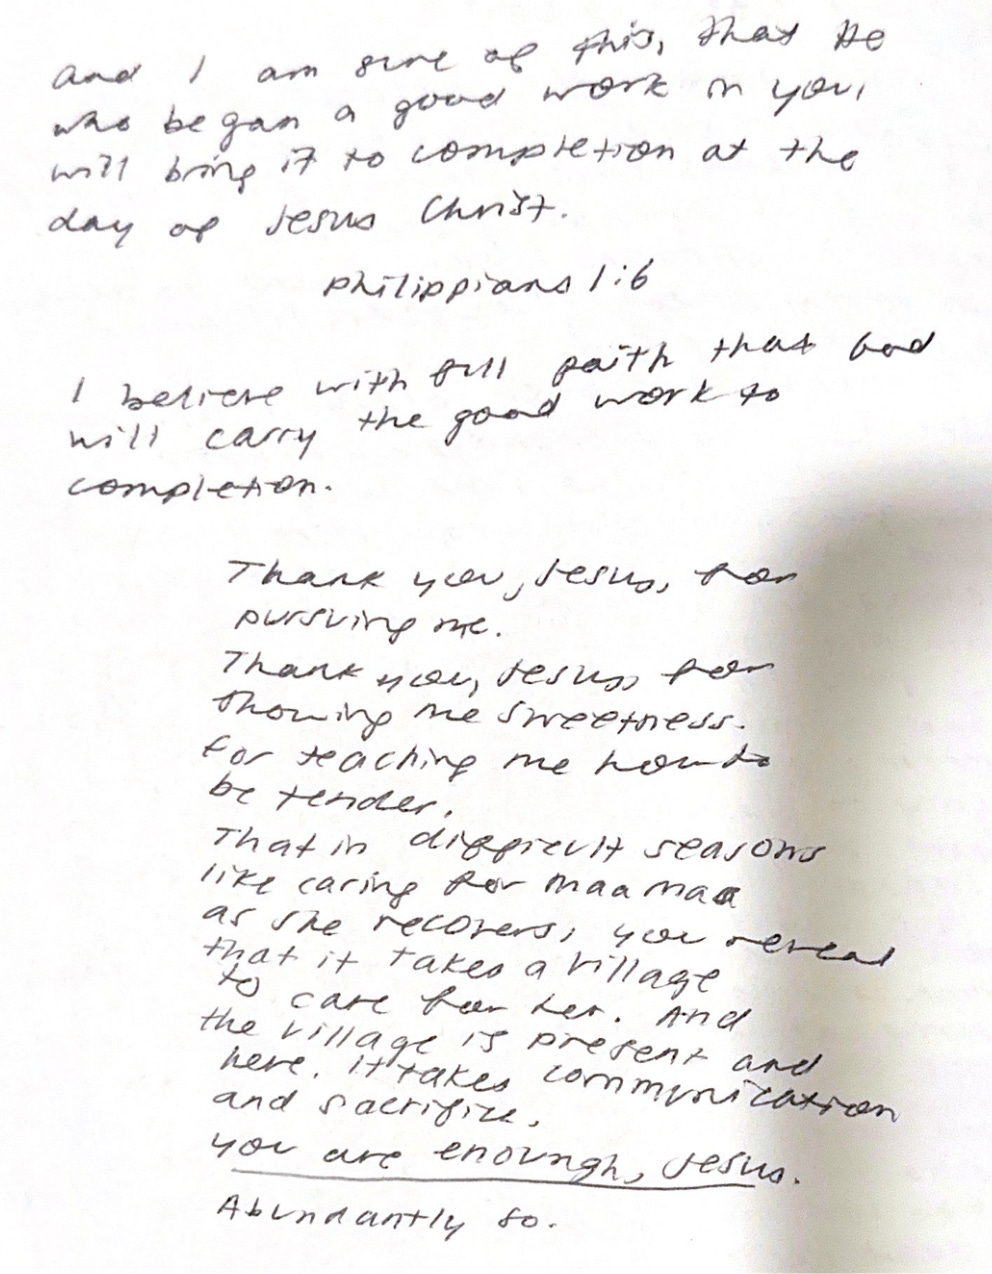 and I am sure of this, that He
who began a good work in you,
will bring it to completion at the
day of Jesus Christ.
Philippians 1:6
I believe with full faith that God
will carry the good work to
completion.
Thank you, Jesus, for
pursuing me.
Thank you, Jesus, for
showing me sweetness.
For teaching me how to
be tender.
That in difficult seasons
like caring for maamaa
as she recovers, you reveal
that it takes a village
to care for her. And
the village is present and
here. it takes communication
and sacrifice.
you are enoungh, Jesus.
Abundantly so.